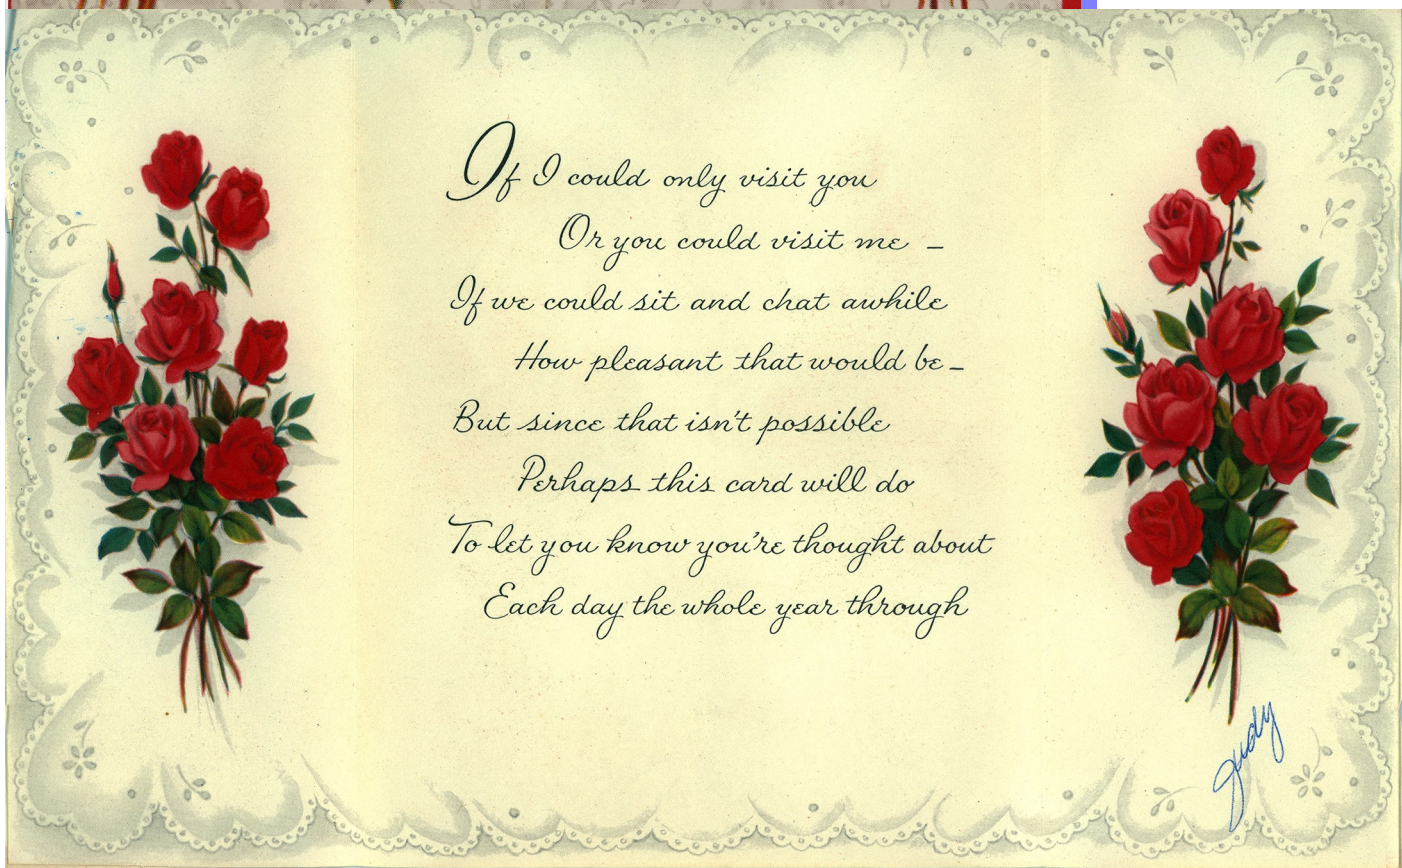 If I could only visit you
Or you could visit me –
If we could sit and chat awhile
How pleasant that would be –
But since that isn't possible
Perhaps this card will do
To let you know you're thought about
Each day the whole year through
Judy